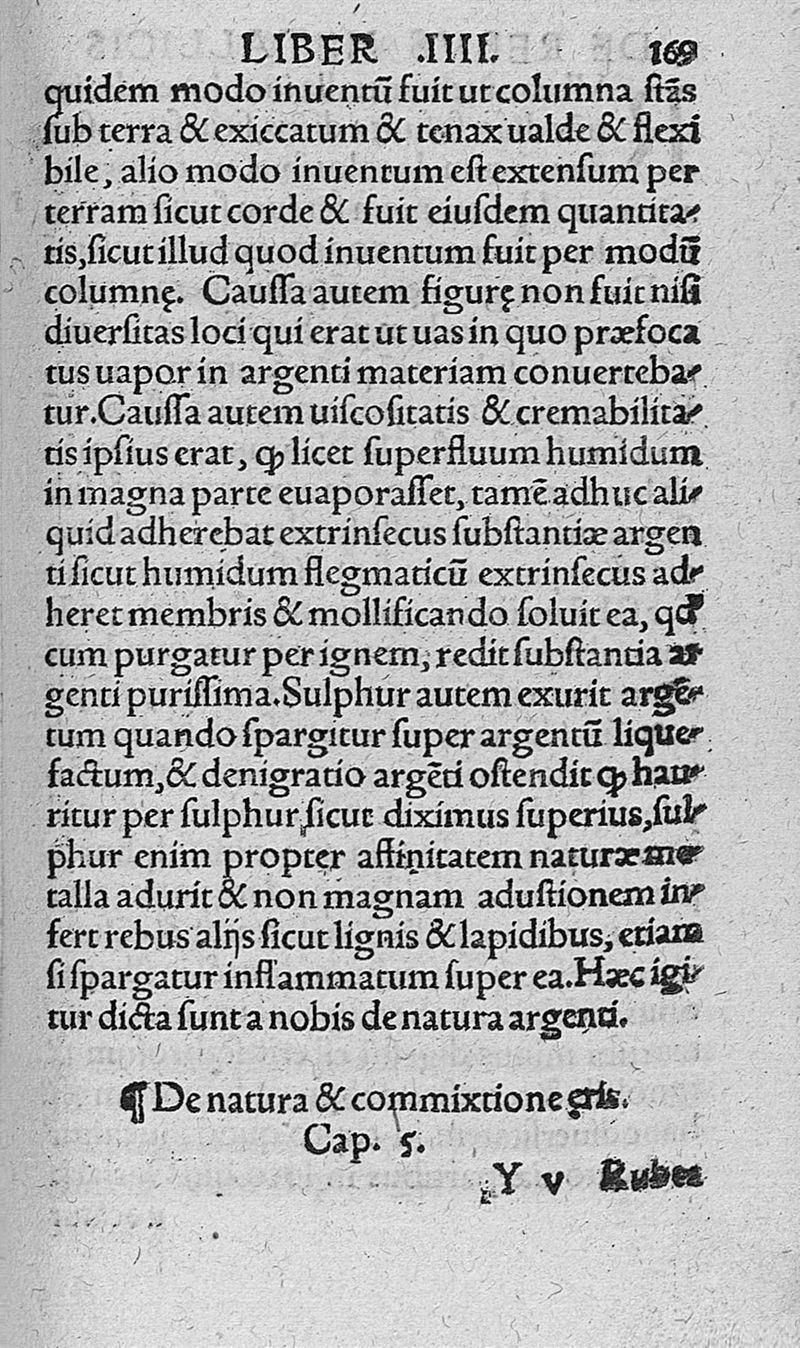 LIBER .IIII. 169
quidem modo inuentū fuit ut columna stās
sub terra & exiccatum & tenax ualde & flexi
bile, alio modo inuentum est extensum per
terram sicut corde & fuit eiusdem quantita-
tis, sicut illud quod inuentum fuit per modū
columnę. Caussa autem figurę non fuit nisi
diuersitas loci qui erat ut uas in quo præfoca
tus uapor in argenti materiam conuerteba-
tur. Caussa autem uiscositatis & cremabilita-
tis ipsius erat, ꝙ licet superfluum humidum
in magna parte euaporasset, tamē adhuc ali-
quid adherebat extrinsecus substantiæ argen
ti sicut humidum flegmaticū extrinsecus ad-
heret membris & mollificando soluit ea, qđ
cum purgatur per ignem, redit substantia ar
genti purissima. Sulphur autem exurit argē-
tum quando spargitur super argentū lique-
factum, & denigratio argēti ostendit ꝙ hau-
ritur per sulphur, sicut diximus superius, sul-
phur enim propter affinitatem naturæ me-
talla adurit & non magnam adustionem in-
fert rebus alijs sicut lignis & lapidibus, etiam
si spargatur inflammatum super ea. Hæc igi-
tur dicta sunt a nobis de natura argenti.
¶ De natura & commixtione ęris.
Cap. 5.
Y v Rubea